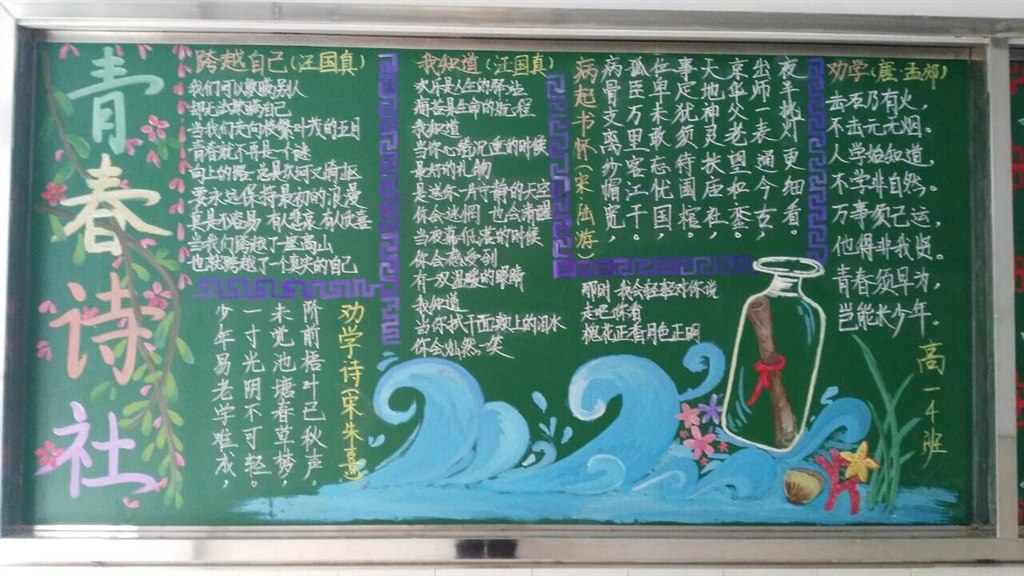 青春诗社
跨越自己(汪国真)
我们可以欺瞒别人
却无法欺瞒自己
当我们走向枝繁叶茂的五月
青春就不再是一个谜
向上的路 总是坎坷又崎岖
要永远保持最初的浪漫
真是不容易 有人悲哀 有人欣喜
当我们跨越了一座高山
也就跨越了一个真实的自己
劝学诗(宋朱熹)
少年易老学难成，
一寸光阴不可轻。
未觉池塘春草梦，
阶前梧叶已秋声。
我知道(汪国真)
欢乐是人生的驿站
痛苦是生命的航程
我知道
当你心情沉重的时候
最好的礼物
是送你一片宁静的天空
你会迷惘 也会清醒
当夜幕低落的时候
你会感受到
有一双温暖的眼睛
我知道
当你拭干面颊上的泪水
你会灿然一笑
那时 我会轻轻对你说
走吧 你看
槐花正香 月色正明
病起书怀(宋陆游)
病骨支离纱帽宽，
孤臣万里客江干。
位卑未敢忘忧国，
事定犹须待棺。
天地神灵扶庙社，
京华父老望和銮。
出师一表通今古，
夜半更细看。
劝学(唐孟郊)
击石乃有火，
不击元无烟。
人学始知道，
不学非自然。
万事须己运，
他得非我贤。
青春须早为，
岂能长少年。
高一4班